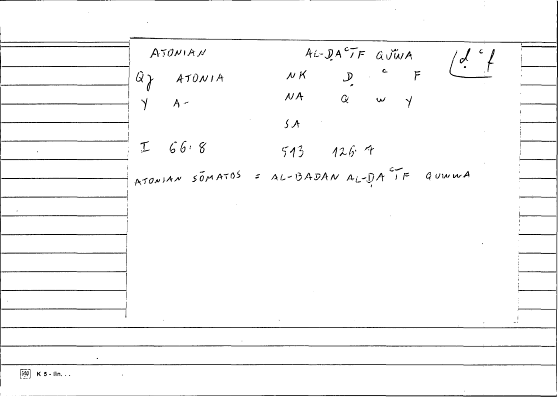 ATONIAN AL-ḌAʿĪF QŪWA ḍʿf
Qz ATONIA NK Ḍ ʿ F
Y A- NA Q W Y
SA
I 66.8 513 126.7
ATONIAN SŌMATOS = AL-BADAN AL-ḌAʿĪF QUWWA
K 5 - lin. . .